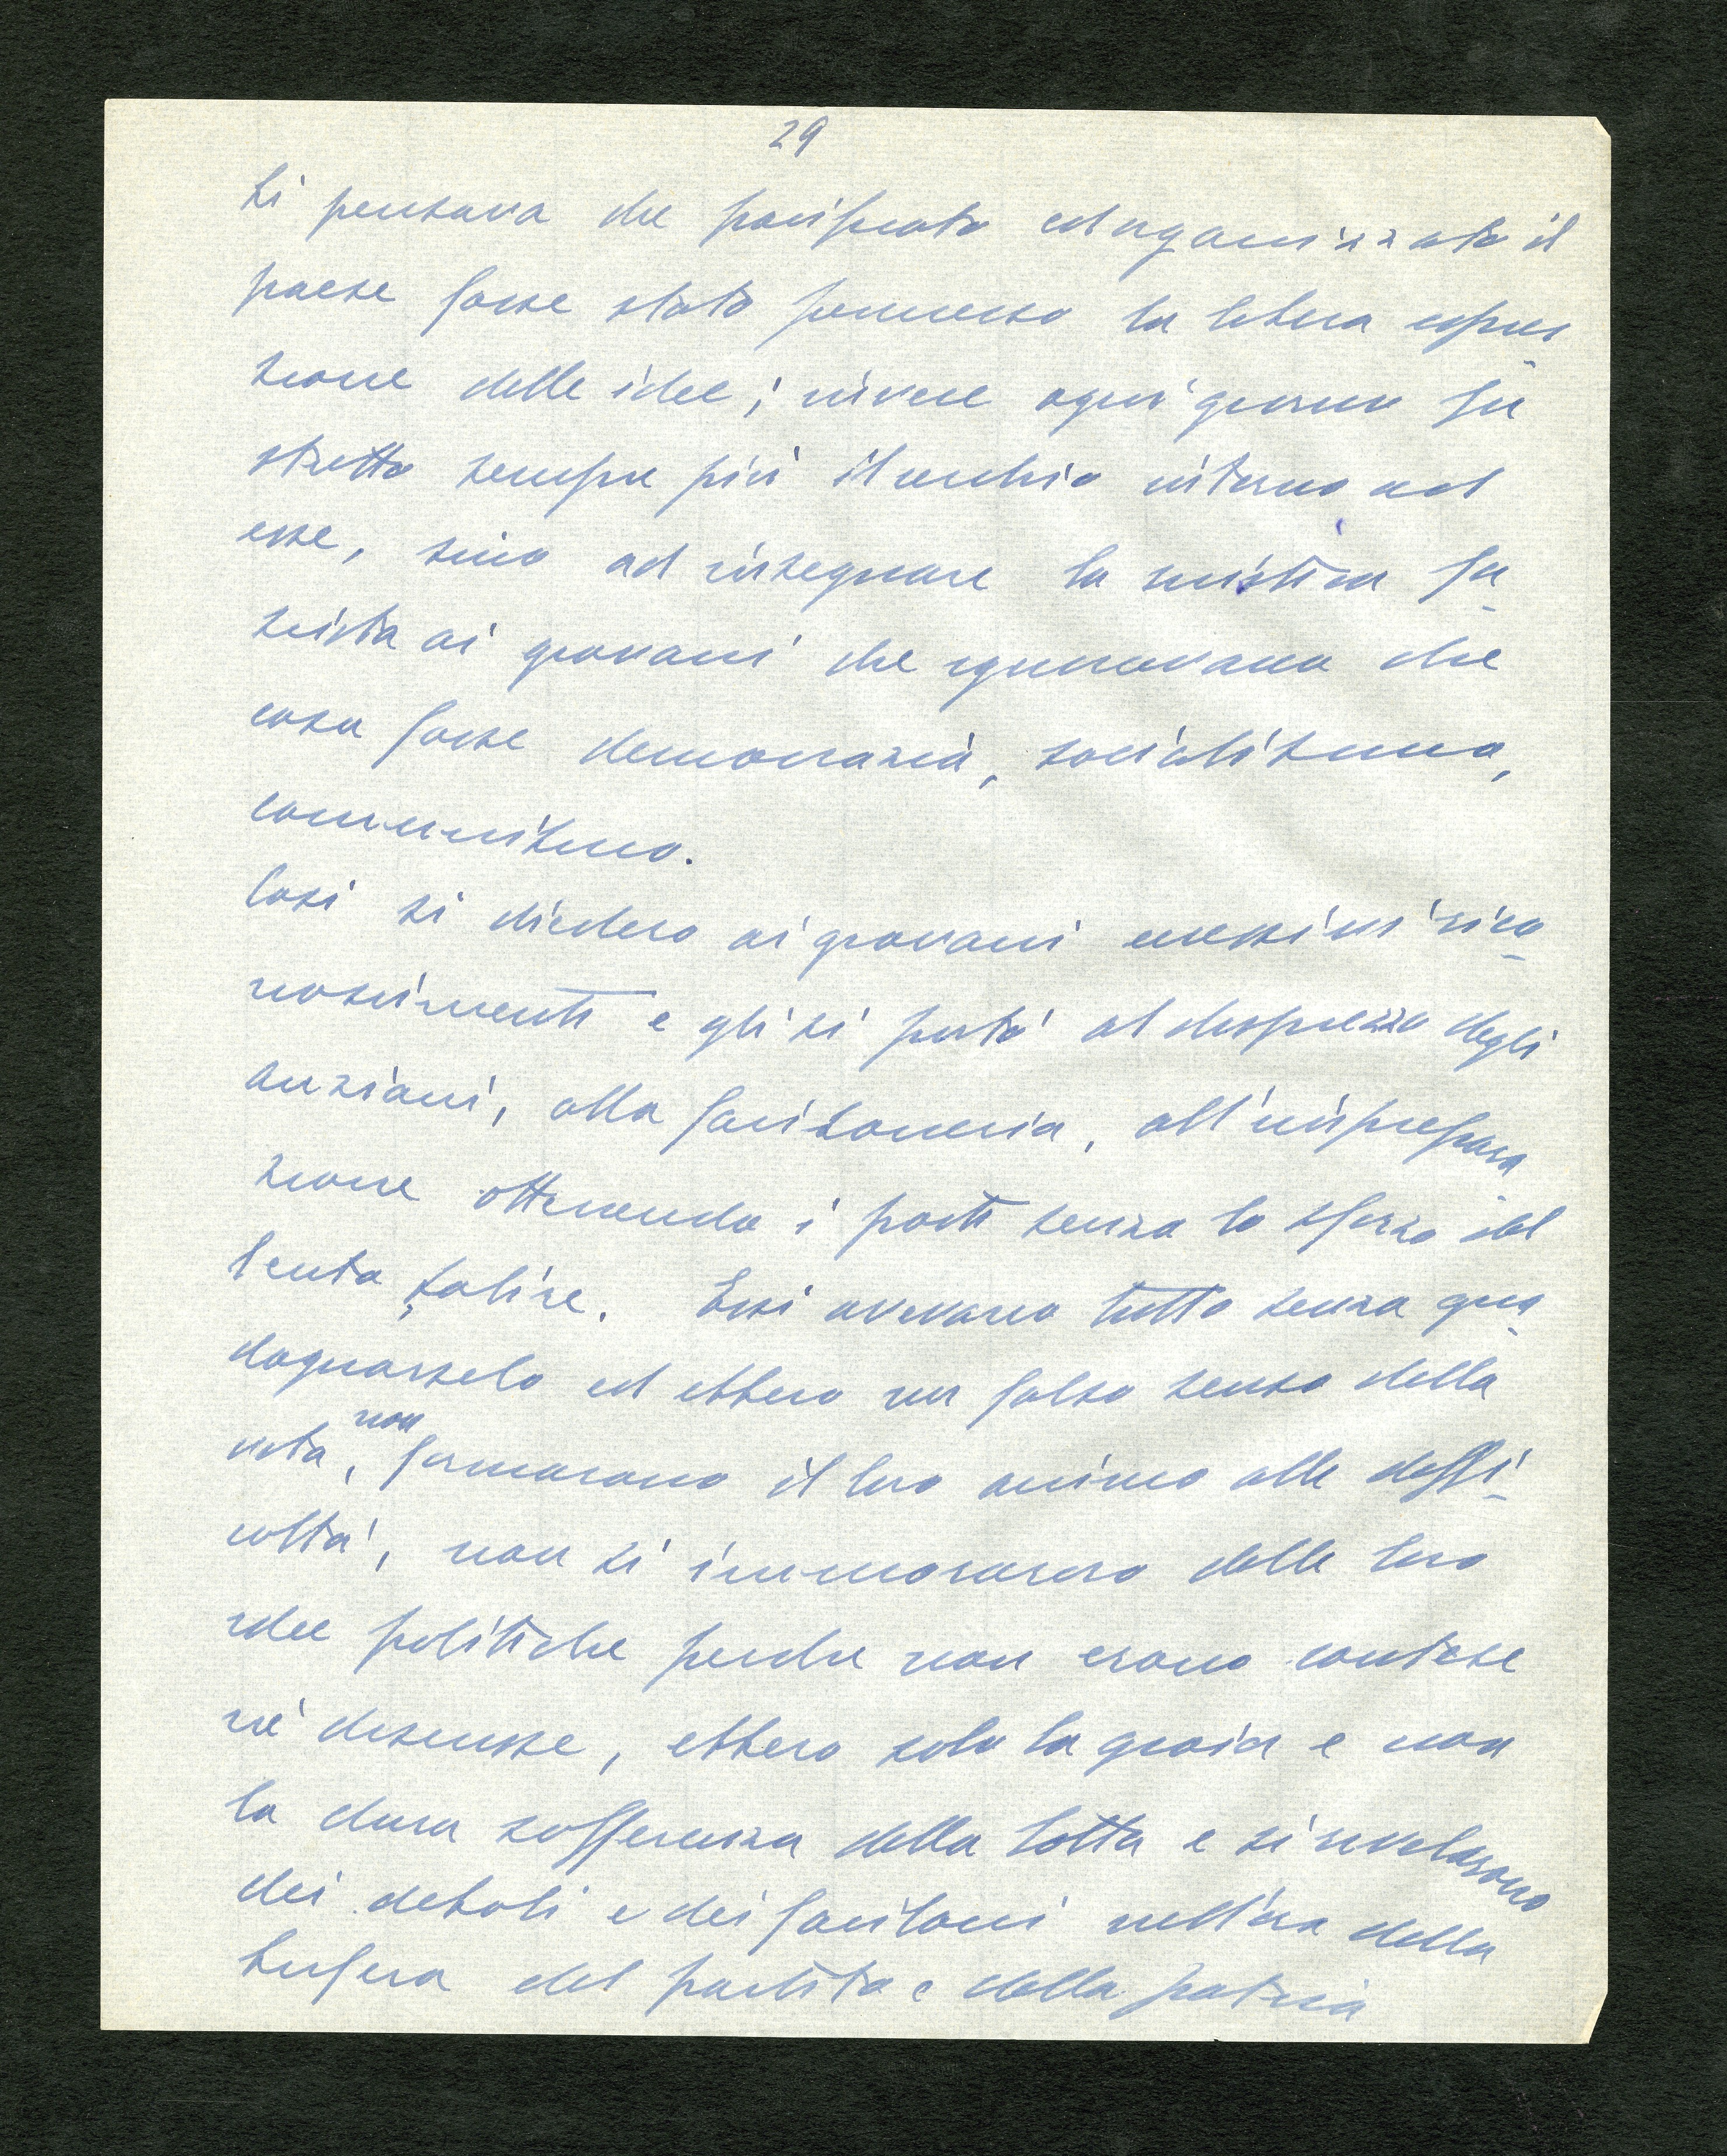 29
Si pensava che pacificato ed organizzato il
paese fosse stato permesso la libera espres
sione delle idee; invece ogni giorno fu
stretto sempre più il cerchio intorno ad
esse, sino ad insegnare la mistica fa
scista ai giovani che ignoravano che
cosa fosse democrazia, socialismo,
comunismo.
Così si diedero ai giovani eccessivi rico
noscimenti e gli si portò al disprezzo degli
anziani, alla faciloneria, all'imprepara
zione ottenendo i posti senza lo sforzo del
lento salire. Essi avevano tutto senza gua
dagnarselo ed ebbero un falso senso della
vita, non formarono il loro animo alle diffi
coltà, non si innamorarono delle loro
idee politiche perché non erano contese
né discusse, ebbero solo la gioia e non
la dura sofferenza della lotta e si rivelarono
dei deboli e dei faciloni nell'ora della
bufera del partito e della patria